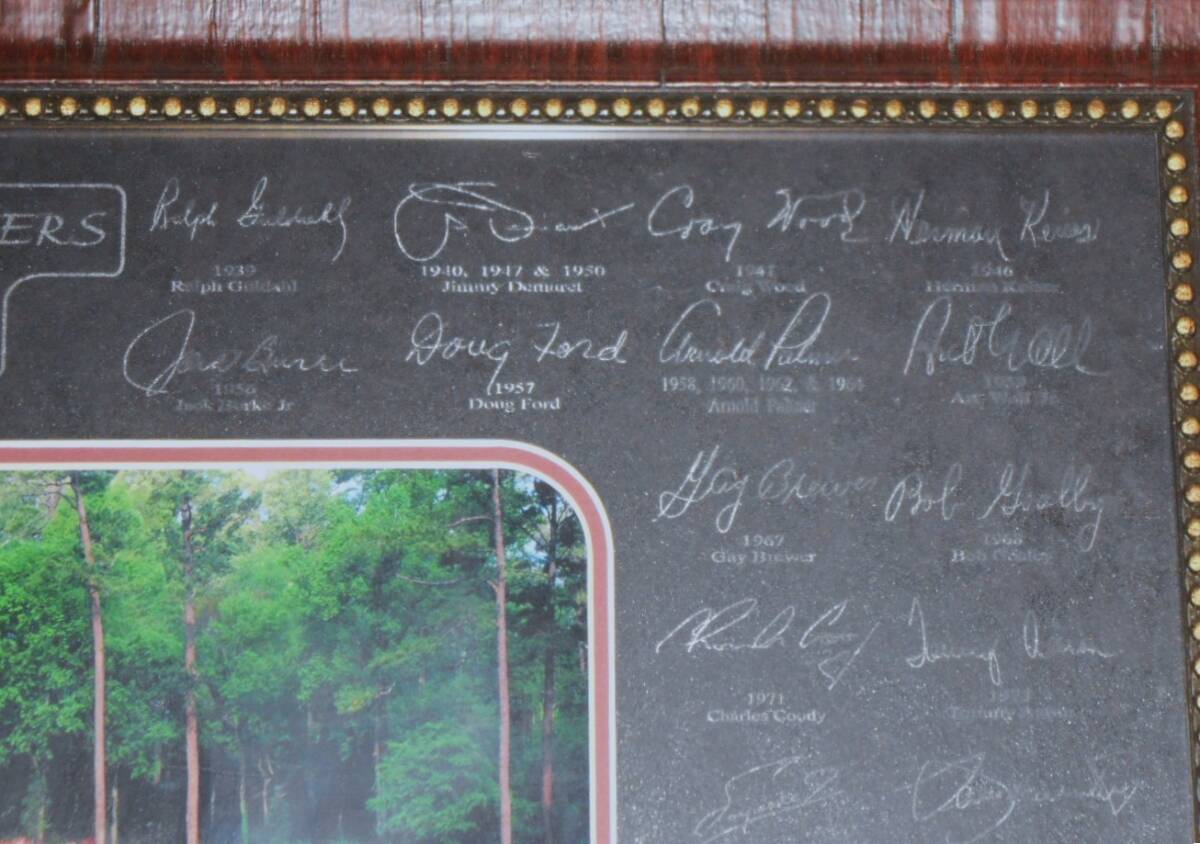 ERS
Ralph Guldahl
1939
Ralph Guldahl
1940, 1947 & 1950
Jimmy Demaret
Craig Wood
1941
Craig Wood
Herman Keiser
1946
Herman Keiser
Jack Burke
1956
Jack Burke Jr
Doug Ford
1957
Doug Ford
Arnold Palmer
1958, 1960, 1962, & 1964
Arnold Palmer
Art Wall
1959
Art Wall Jr
Gay Brewer
1967
Gay Brewer
Bob Goalby
1968
Bob Goalby
Charles Coody
1971
Charles Coody
Tommy Aaron
Tommy Aaron